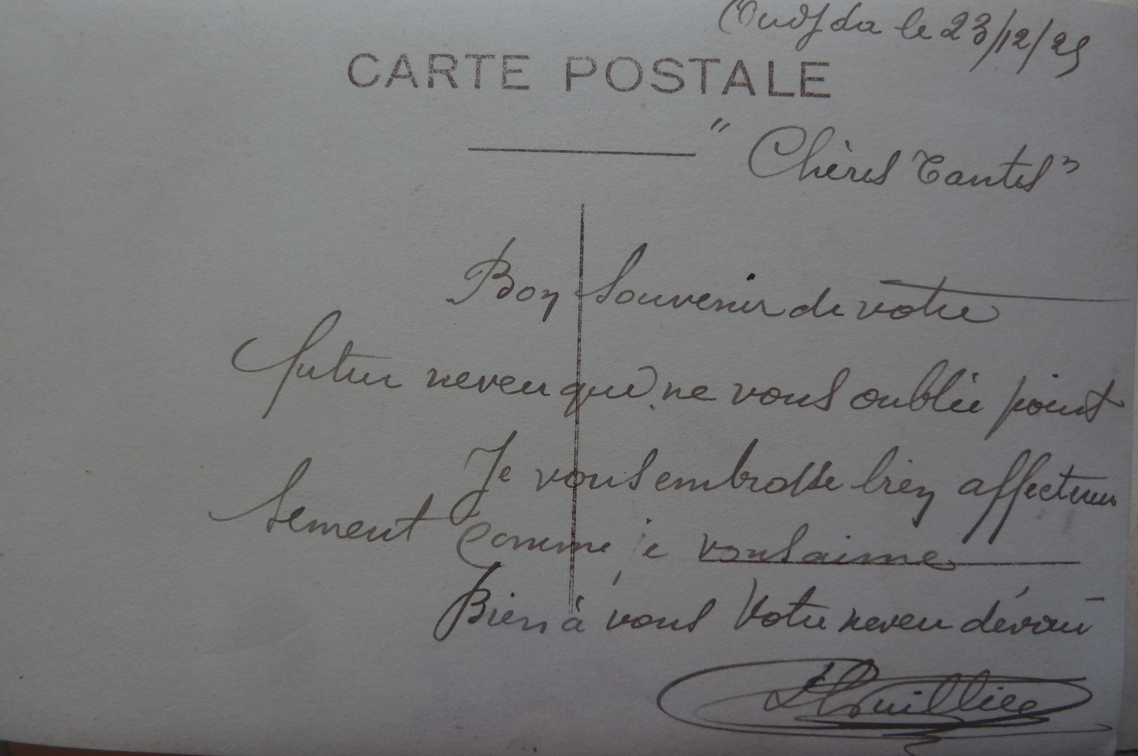 Oudjda le 23/12/25
CARTE POSTALE
" Chères Tantes "
Bon Souvenir de votre
futur neveu que ne vous oublie point
Je vous embrasse bien affectueu
sement comme je vous aime
Bien à vous Votre neveu dévoué